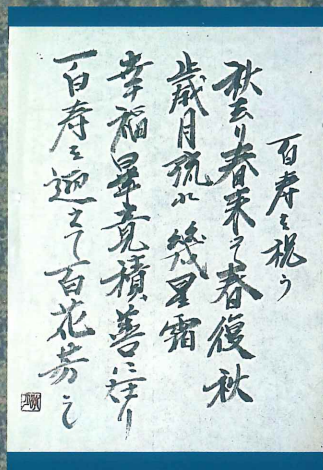 百寿を祝う
秋去り春来って春復秋
歳月流れ幾星霜
幸福畢竟積善に在り
百寿を迎えて百花芳し